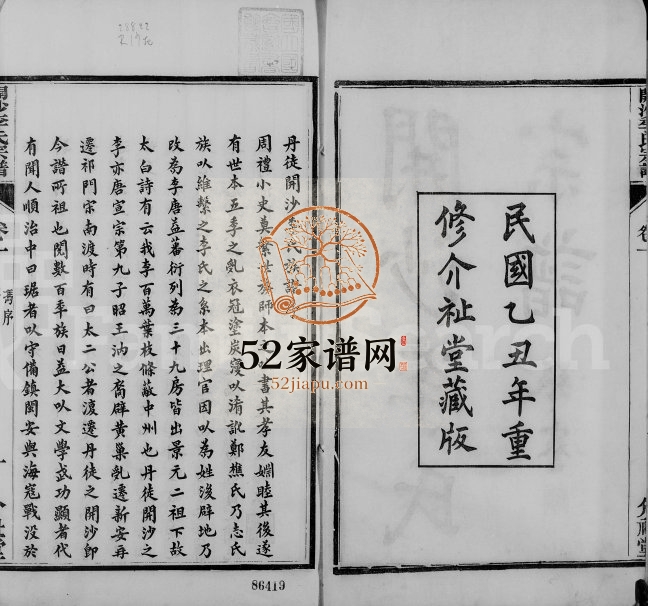 民國乙丑年重
修介祉堂藏版
丹徒開沙李氏族譜
周禮小史奠繫世族師本書其孝友婣睦其後遂
有世本五季之亂衣冠塗炭寖以淆訛鄭樵氏乃志氏
族以維繫之李氏之系本出理官因以為姓後辟地乃
改為李唐益蕃衍列為三十九房皆出景元二祖下故
太白詩有云我李百萬葉枝條蔽中州也丹徒開沙之
李亦唐宣宗第九子昭王汭之裔辟黃巢亂遷新安再
遷祁門宗南渡時有曰太二公者渡遷丹徒之開沙即
今譜所祖也閱數百季族日益大以文學武功顯者代
有聞人順治中曰琚者以守備鎮閩安與海寇戰没於
開沙李氏宗譜
馮序
卷一
52家谱网
52jiapu.com
86419